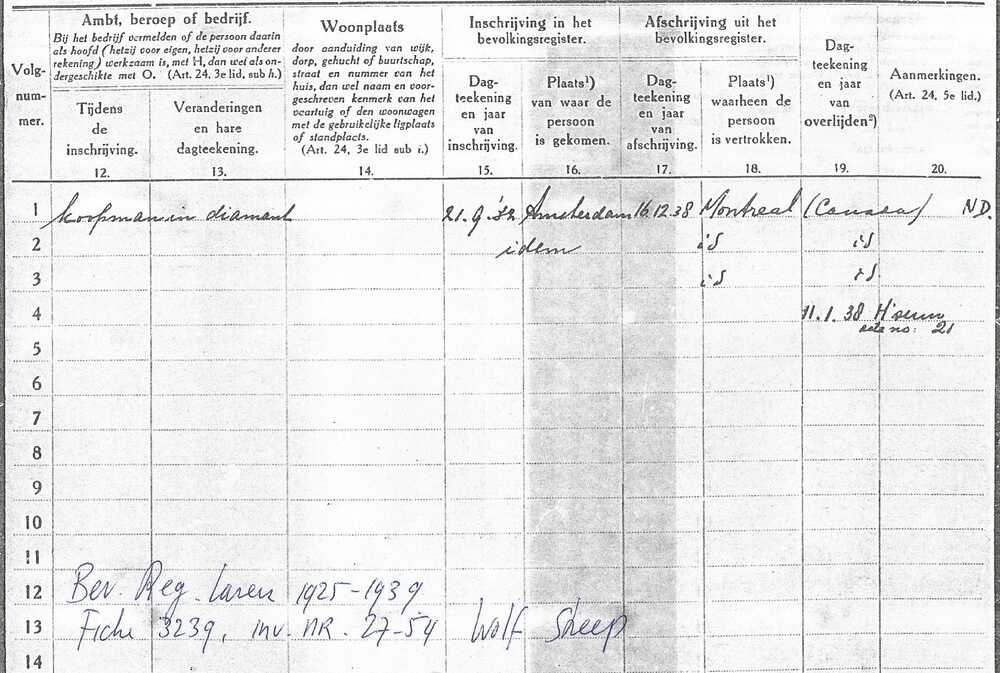 Volg-
num-
mer.
Ambt, beroep of bedrijf.
Bij het bedrijf vermelden of de persoon daarin
als hoofd (hetzij voor eigen, hetzij voor anderer
rekening) werkzaam is, met H, dan wel als on-
dergeschikte met O. (Art. 24, 3e lid, sub h.)
Tijdens
de
inschrijving.
12.
Veranderingen
en hare
dagteekening.
13.
Woonplaats
door aanduiding van wijk,
dorp, gehucht of buurtschap,
straat en nummer van het
huis, dan wel naam en voor-
geschreven kenmerk van het
vaartuig of den woonwagen
met de gebruikelijke ligplaats
of standplaats.
(Art. 24, 3e lid sub i.)
14.
Inschrijving in het
bevolkingsregister.
Dag-
teekening
en jaar
van
inschrijving.
15.
Plaats¹)
van waar de
persoon
is gekomen.
16.
Afschrijving uit het
bevolkingsregister.
Dag-
teekening
en jaar
van
afschrijving.
17.
Plaats¹)
waarheen de
persoon
is vertrokken.
18.
Dag-
teekening
en jaar
van
overlijden²)
19.
Aanmerkingen.
(Art. 24, 5e lid.)
20.
1 koopman in diamant 21.9.'32 Amsterdam 16.12.38 Montreal (Canada) N.D.
2 idem id id
3 id id.
4 11.1.38 H'sum
acte no: 21
5
6
7
8
9
10
11
12 Bev. Reg. Laren 1925-1939
13 Fiche 3239, inv. nr. 27-54 Wolf Sheep
14